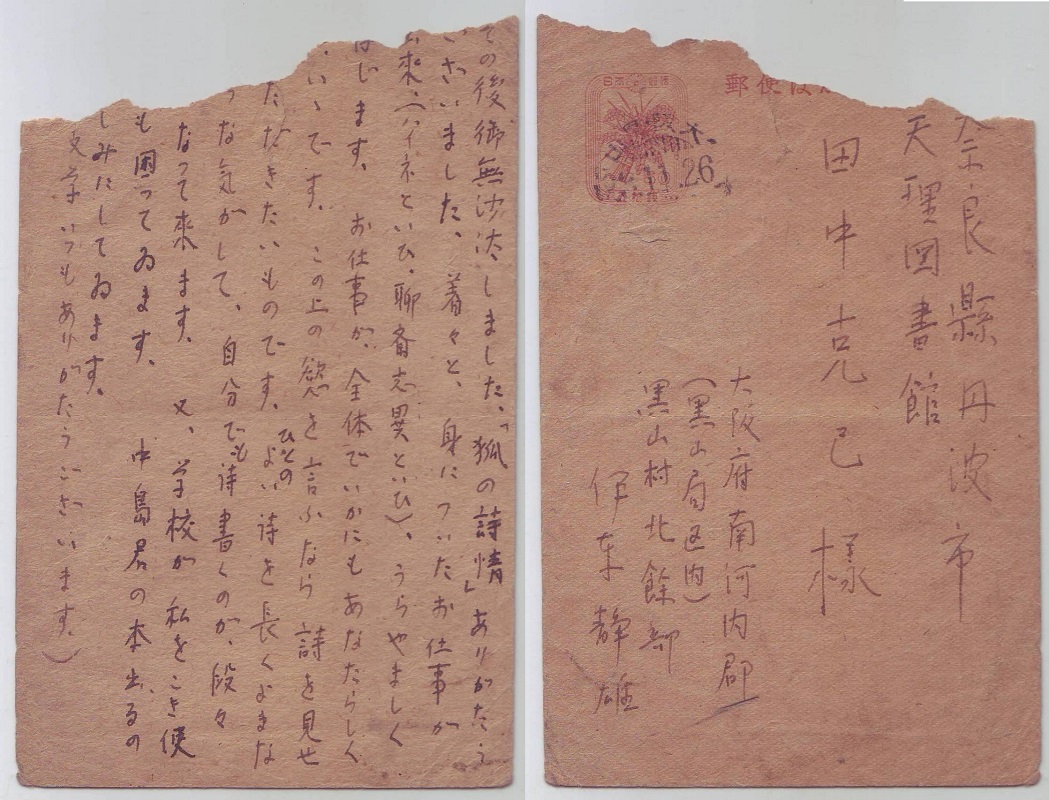 その後御無沙汰しました、「狐の詩情」ありがたう
ざいました、着々と、身についたお仕事が
来、(ハイネといひ、聊斎志異といひ)、うらやましく
じます。お仕事が、全体でいかにもあなたらしく
いゝです。この上の慾を言ふなら 詩を見せ
ただきたいものです。ひとのよい詩を長くよまな
な気がして、自分でも詩書くのが、段々
なって来ます。又、学校が私をこき使
も困ってゐます。中島君の本出るの
しみにしてゐます。
文学いつもありがたうございます。)
郵便
11.26
奈良縣丹波市
天理図書館
田中克己様
大阪府南河内郡
(黒山局区内)
黒山村北餘部
伊東静雄